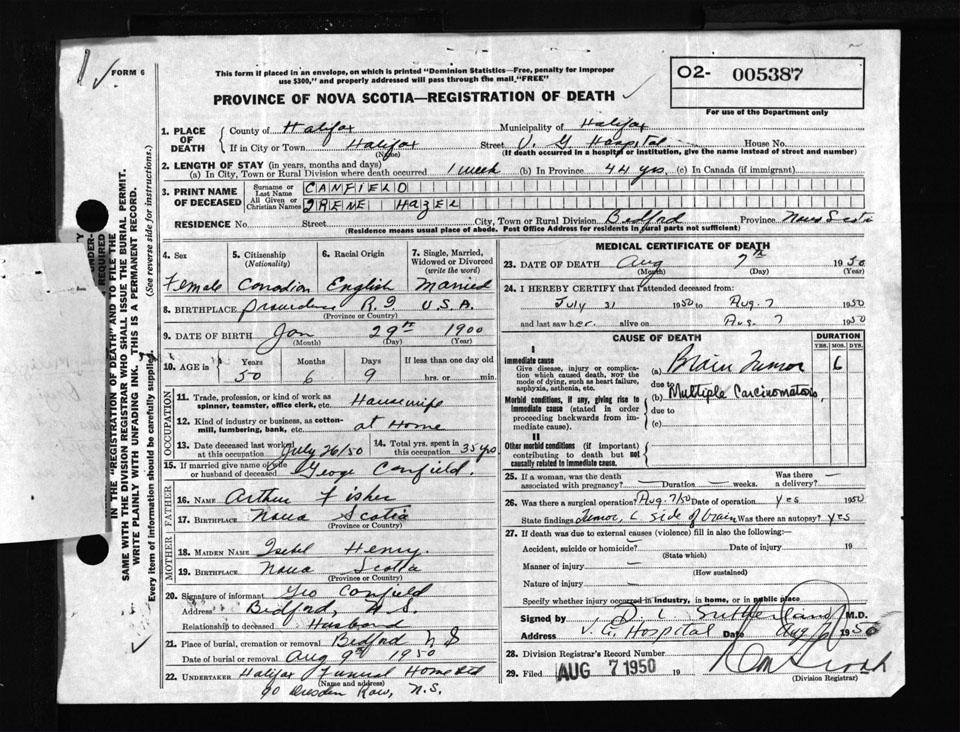 FORM 6
This form if placed in an envelope, on which is printed "Dominion Statistics—Free, penalty for improper
use $300," and properly addressed will pass through the mail, "FREE"
02- 005387
For use of the Department only
PROVINCE OF NOVA SCOTIA—REGISTRATION OF DEATH
1. PLACE OF DEATH { County of Halifax Municipality of Halifax
If in City or Town Halifax (Name) Street V. G Hospital House No.
(If death occurred in a hospital or institution, give the name instead of street and number)
2. LENGTH OF STAY (in years, months and days)
(a) In City, Town or Rural Division where death occurred 1 week (b) In Province 44 yrs (c) In Canada (if immigrant)
3. PRINT NAME OF DECEASED { Surname or Last Name CANFIELD
All Given or Christian Names IRENE HAZEL
RESIDENCE No. Street City, Town or Rural Division Bedford Province Nova Scotia
(Residence means usual place of abode. Post Office Address for residents in rural parts not sufficient)
4. Sex 5. Citizenship (Nationality) 6. Racial Origin 7. Single, Married, Widowed or Divorced (write the word)
Female Canadian English Married
8. BIRTHPLACE Providence R.I U.S.A.
(Province or Country)
9. DATE OF BIRTH Jan 29th 1900
(Month) (Day) (Year)
10. AGE in { Years Months Days If less than one day old
50 6 9 hrs. or min.
OCCUPATION
11. Trade, profession or kind of work as spinner, teamster, office clerk, etc. Housewife
12. Kind of industry or business, as cotton-mill, lumbering, bank, etc. at Home
13. Date deceased last worked at this occupation July 26/50 14. Total yrs. spent in this occupation 35 yrs
15. If married give name of wife or husband of deceased George Canfield.
FATHER
16. NAME Arthur Fisher
17. BIRTHPLACE Nova Scotia
(Province or Country)
MOTHER
18. MAIDEN NAME Isabel Henry.
19. BIRTHPLACE Nova Scotia
(Province or Country)
20. Signature of informant Geo Canfield
Address Bedford, N.S.
Relationship to deceased Husband
21. Place of burial, cremation or removal Bedford N S
Date of burial or removal Aug 9th 1950
22. UNDERTAKER Halifax Funeral Home Ltd
(Name and address)
90 Dresden Row, N.S.
MEDICAL CERTIFICATE OF DEATH
23. DATE OF DEATH Aug 7th 1950
(Month) (Day) (Year)
24. I HEREBY CERTIFY that I attended deceased from:
July 31 1950 to Aug. 7 1950
and last saw her alive on Aug. 7 1950
CAUSE OF DEATH DURATION
YRS. MOS. DYS.
I
Immediate cause (a) Brain Tumor 6
Give disease, injury or complication which caused death, NOT the mode of dying, such as heart failure, asphyxia, asthenia, etc.
due to
Morbid conditions, if any, giving rise to immediate cause (stated in order proceeding backwards from immediate cause).
(b) Multiple Carcinomatosis
due to
(c)
II
Other morbid conditions (if important) contributing to death but not causally related to immediate cause.
25. If a woman, was the death associated with pregnancy? — Duration — weeks. Was there a delivery? —
26. Was there a surgical operation? Aug. 7/50 Date of operation yes 1950
State findings Tumor, L side of brain Was there an autopsy? yes
27. If death was due to external causes (violence) fill in also the following:
Accident, suicide or homicide? — Date of injury 19
(State which)
Manner of injury —
(How sustained)
Nature of injury —
Specify whether injury occurred in industry, in home, or in public place
Signed by D. L Sutherland M.D.
Address V. G. Hospital Date Aug 1950
28. Division Registrar's Record Number
29. Filed AUG 7 1950 19
(Division Registrar)
IN THE "REGISTRATION OF DEATH" AND TO FILE THE
SAME WITH THE DIVISION REGISTRAR WHO SHALL ISSUE THE BURIAL PERMIT.
WRITE PLAINLY WITH UNFADING INK. THIS IS A PERMANENT RECORD.
Every item of information should be carefully supplied. (See reverse side for instructions.)
UNDER-
REQUIRED